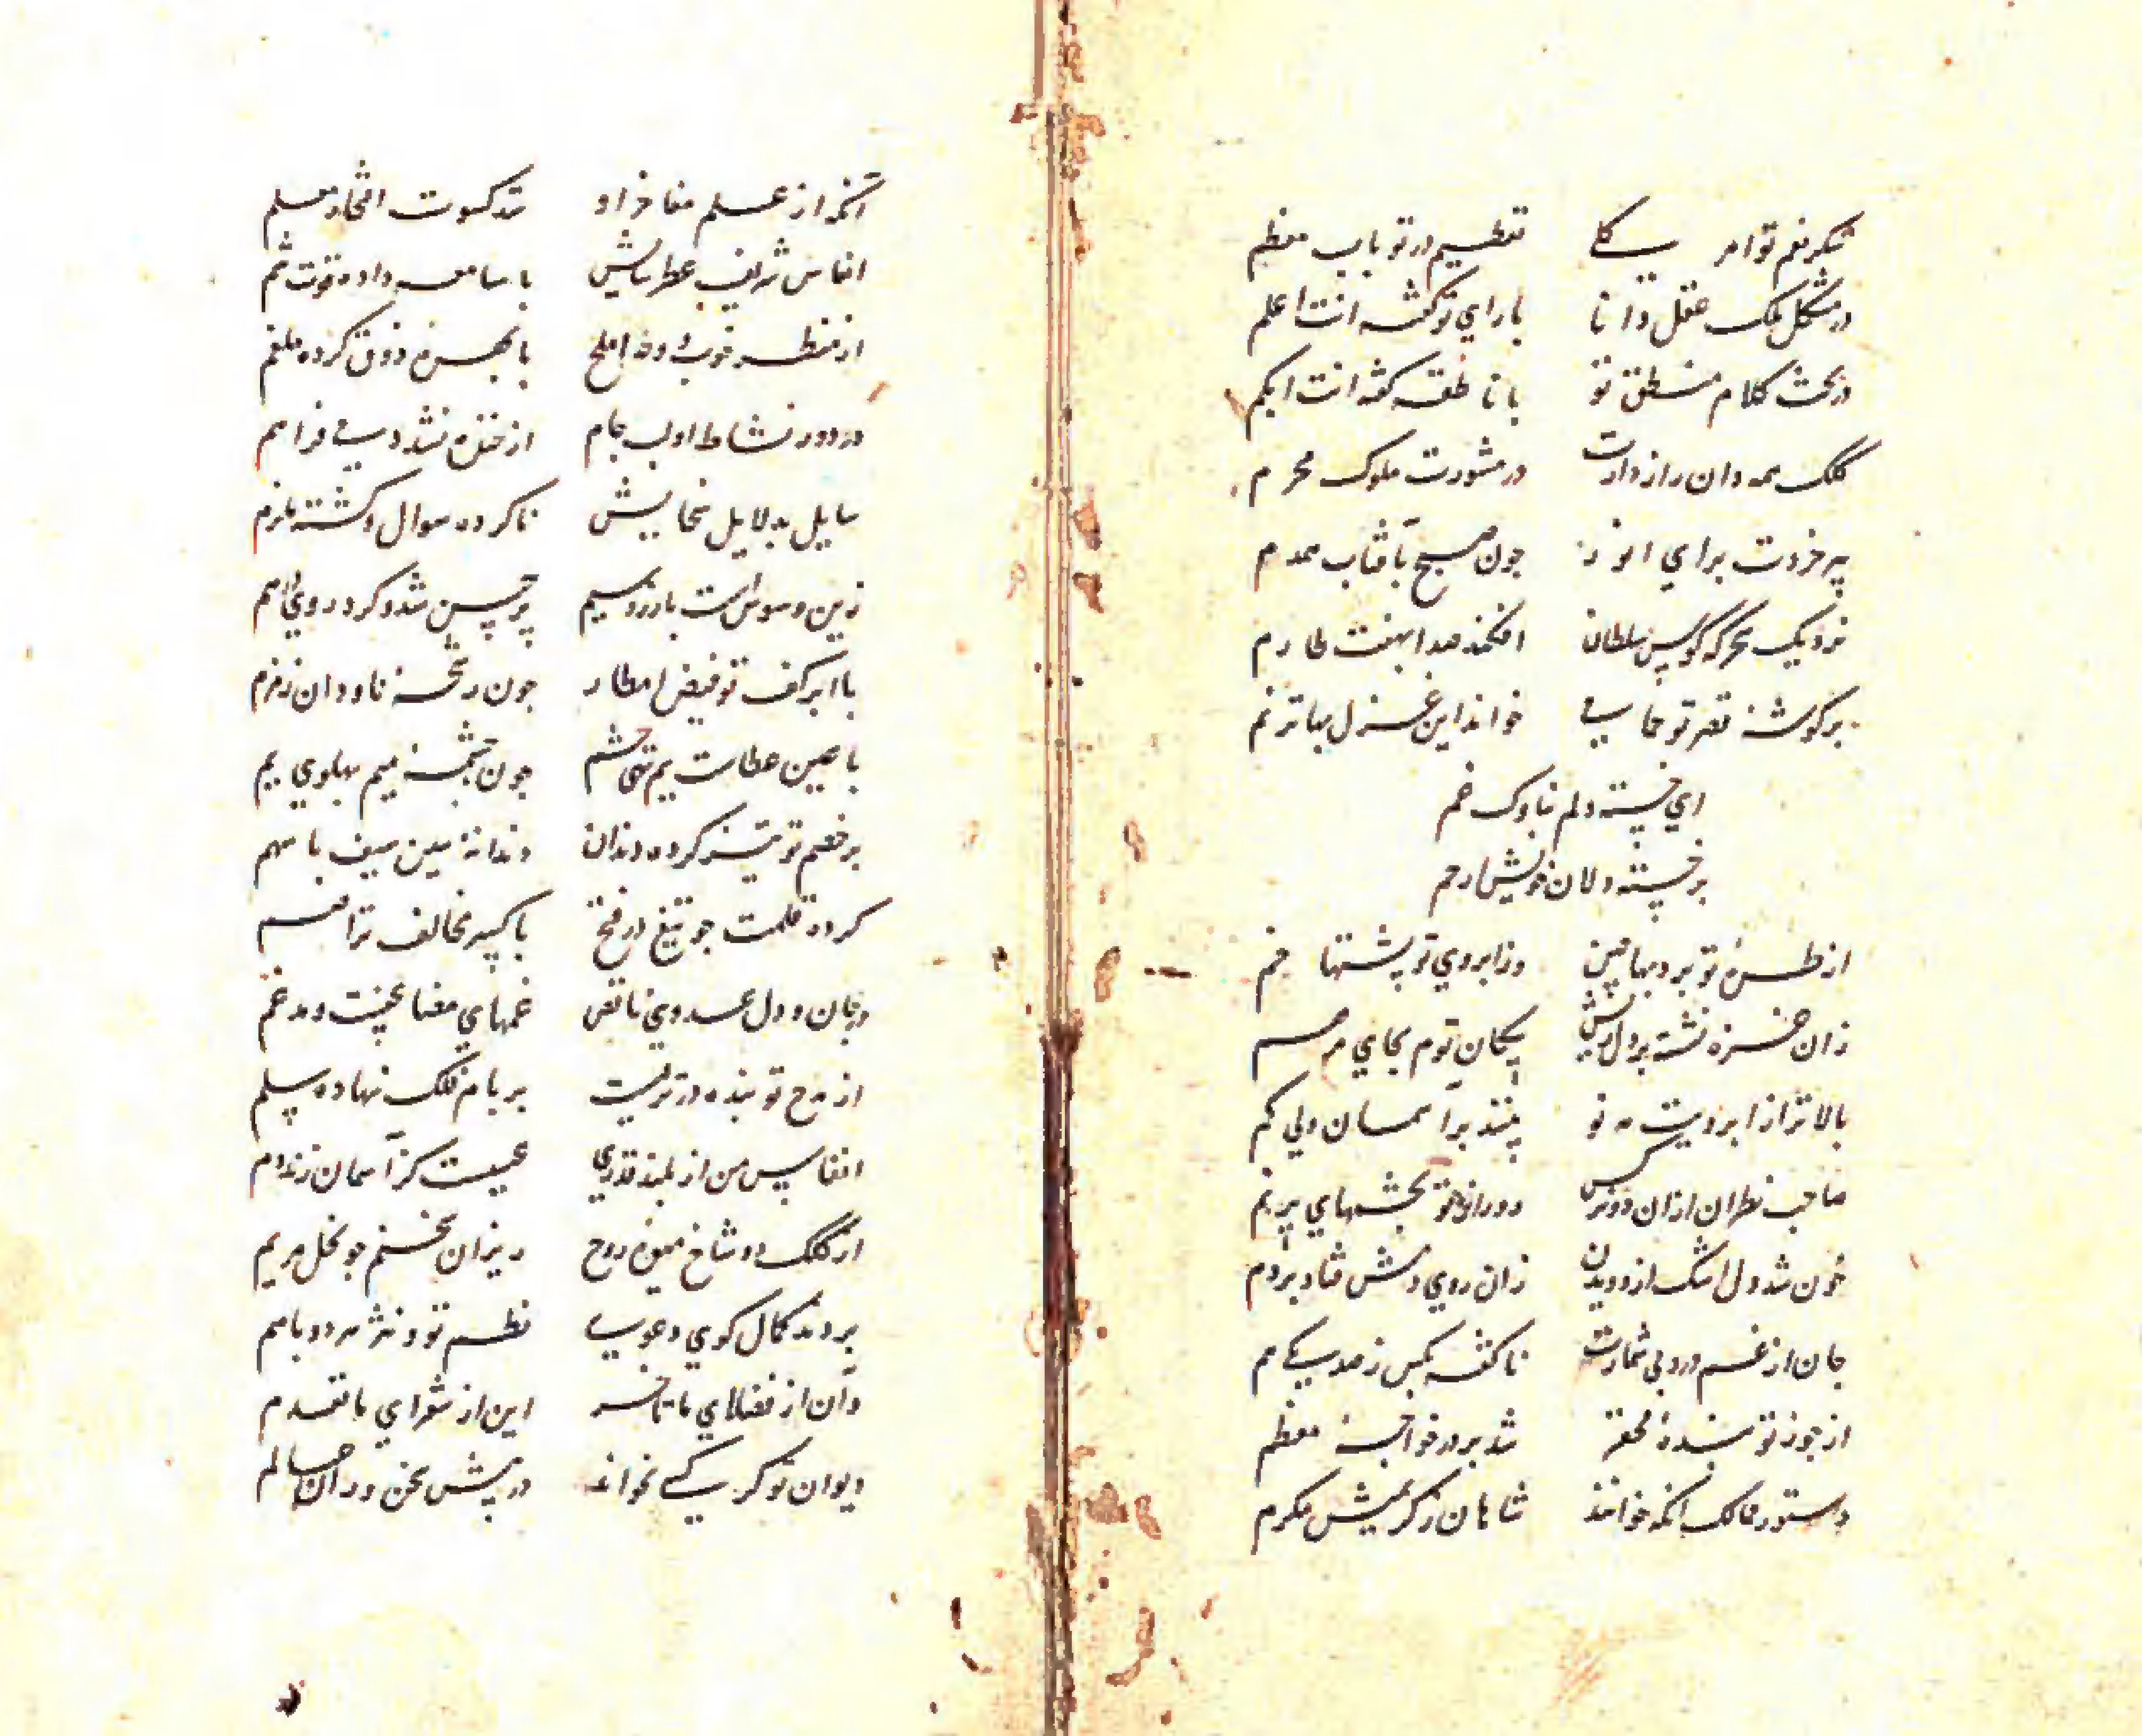 در مشکل ملک عقل دانا با رای تو گفته انت اعلم
در بحث کلام منطق تو با ناطقه گفته انت ابکم
کلک همه دان رازدارت در مشورت ملوک محرم
پیر خردت برای انور جون صبح بآفتاب همدم
نزدیک بحرکه کوس سلطان افکنده صدا بهفت طارم
بر کوشه قصر تو همایی خواند این غزل بیا ترنم
ای خسته دلم بناوک غم
بر خسته دلان خویش ارحم
از طره تو برو بها چین وز ابروی تو پشتها خم
زان غمزه نشسته بر دل ریش پیکان توم بجای مرهم
بالاتر از ابرویت مه نو بینند بر آسمان ولی کم
صاحب نظران ازان دو نرکس دور از تو بچشمهای پر نم
خون شد دل اشک از دویدن زان روی دمش فتاد بر دم
جان از غم درد بی شمارت ناکفته بکس ز صد یکی هم
از جور تو بنده محقر شد بر در خواجه معظم
دستور ممالک آنکه خوانند شاهان زکرمیش مکرم
آنکز از علم مفاخر او شد کسوت افتخار معلم
انفاس شریف عطر سایش با سامعه داده قوت شم
از منظر خوب و وجه املح با بهره ذوق کرده ملغم
در دور نشاط او لب جام از خنده نشد دمی فراهم
سایل بدلایل سخایش ناکرده سوال و کشته ملزم
زین وسوسهاست با زر و سیم پر چین شده و کرد روی درهم
با ابر کف تو فیض امطار جون رشحه ناودان زمزم
با عین عطات یم تهی چشم جون چشمه میم بهلوی یم
بر خصم تو تیز کرده دندان دندانه سین سیف با سهم
کرده قلمت جو تیغ در فتح با کسر مخالف ترا ضم
در جان و دل عدوی ناقص غمهای مضاعفست و مدغم
از مدح تو بنده در ترقیست بر بام فلک نهاده سلم
انفاس من از بلند قدری عیسیست کز آسمان زند دم
از کلک دو شاخ میوه روح ریزان سخنم جو نخل مریم
بردند کمال کوی دعوی نظم تو و نثر هر دو با هم
وآن از فضلای ما تاخر این از شعرای ما تقدم
دیوان تو کر کسی بخواند در پیش سخن وران عالم